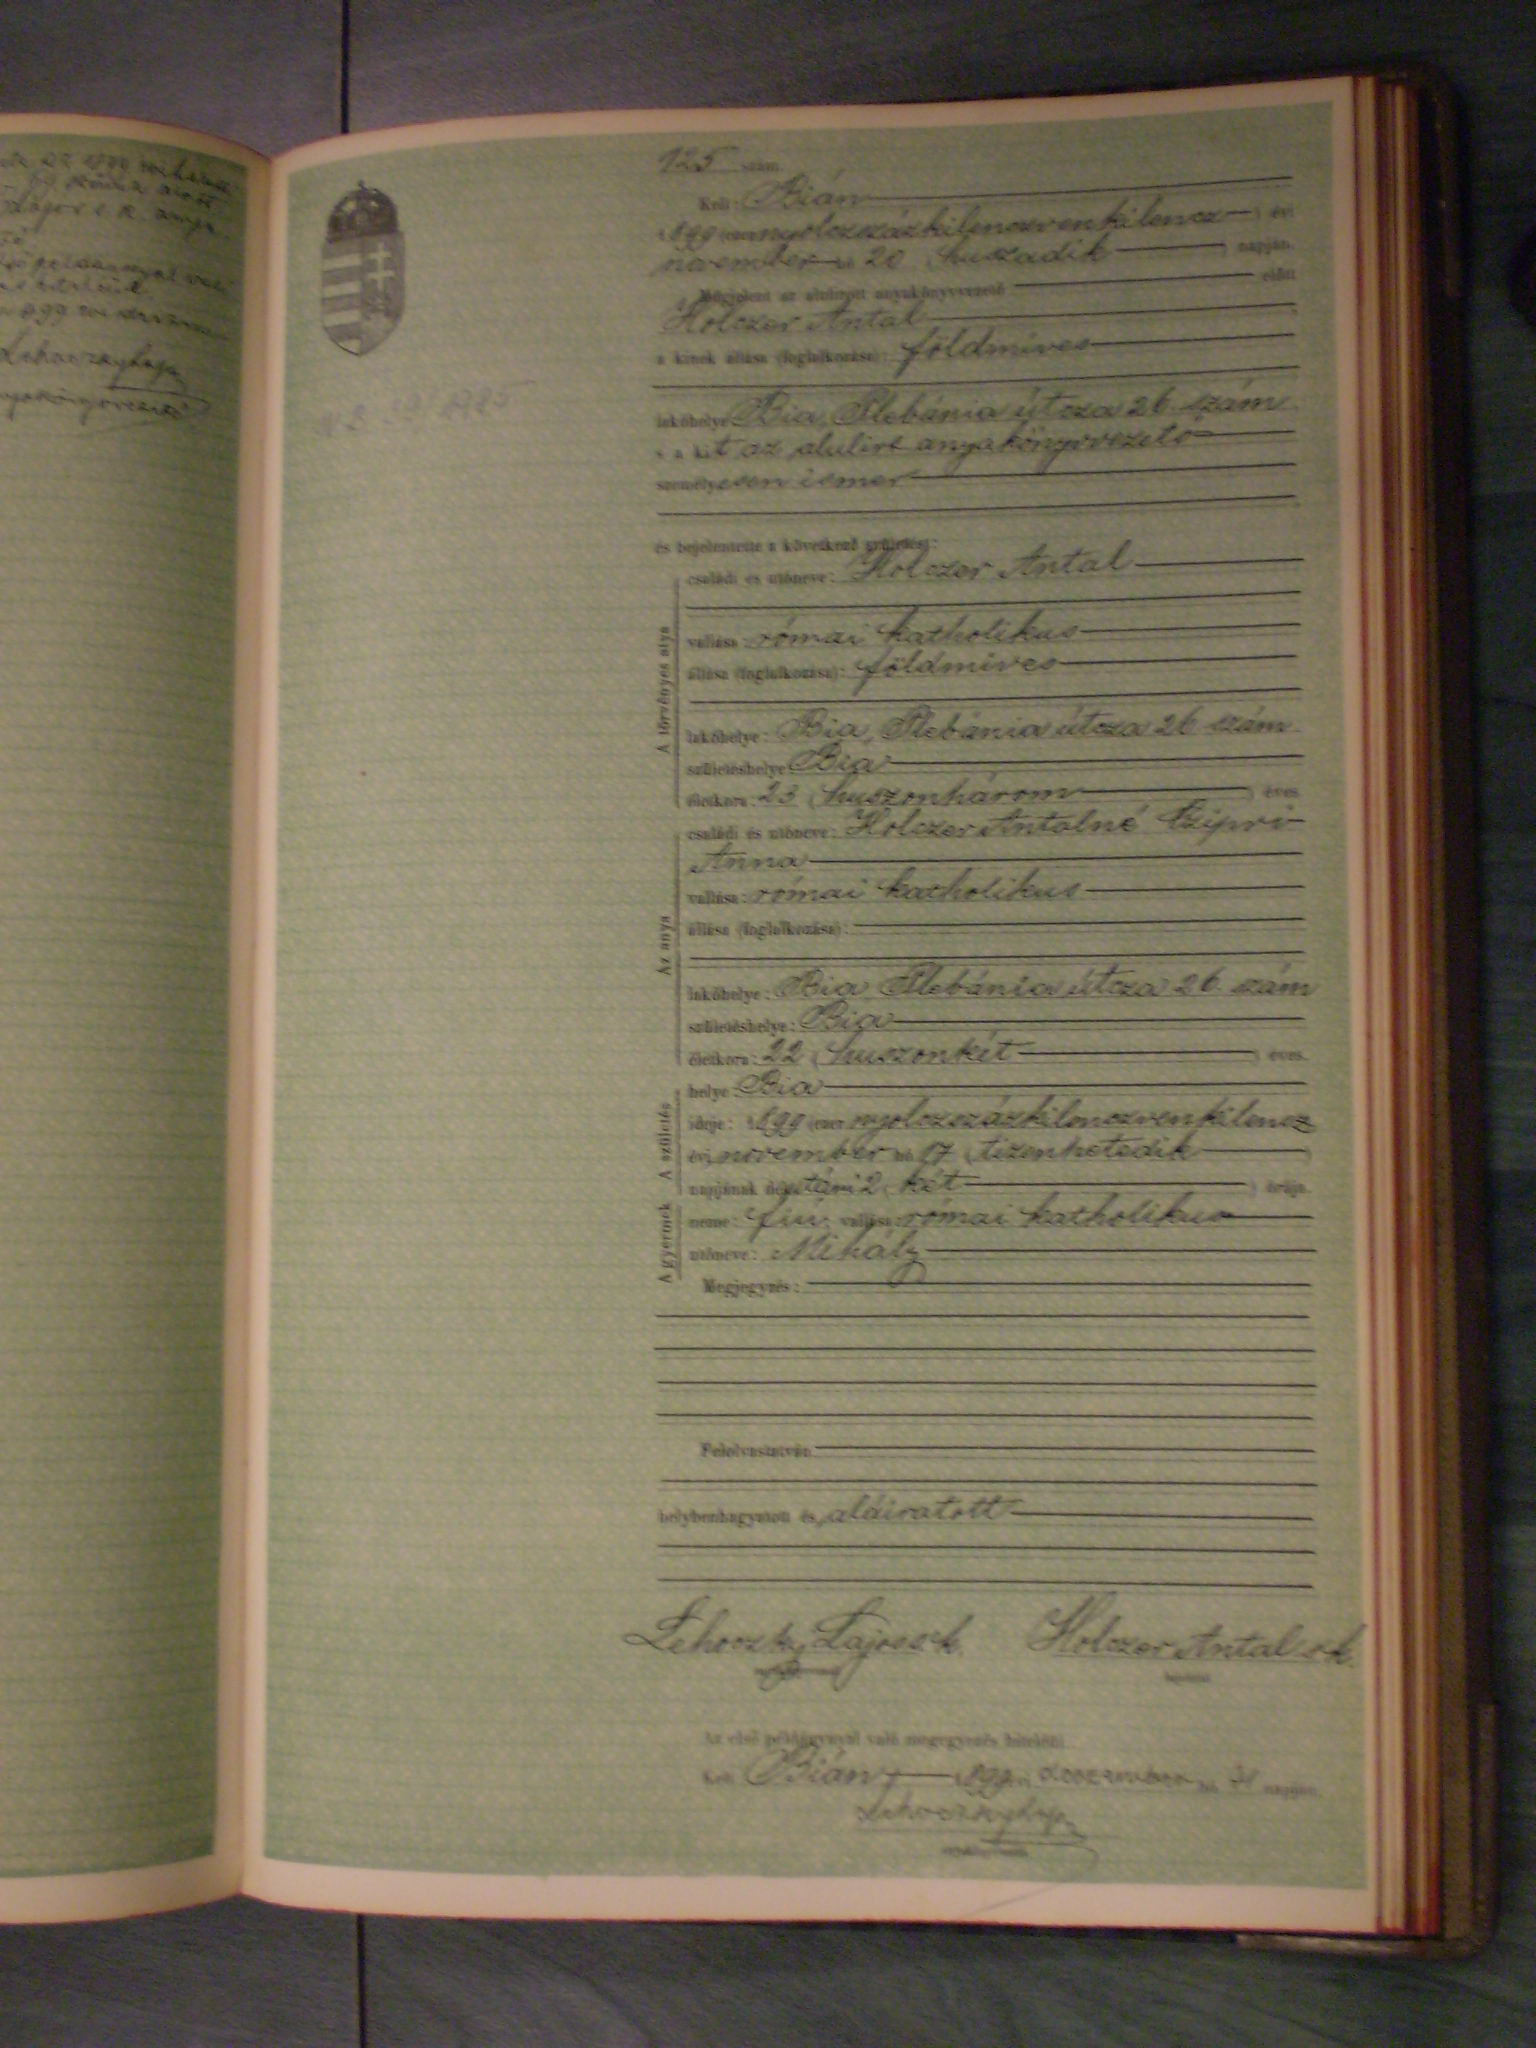 125 szám
Kelt: Bián
1899 (ezernyolczszázkilenczvenkilencz) évi
november hó 20 (huszadik) napján.
Megjelent az alulirott anyakönyvvezető előtt
Holczer Antal
a kinek állása (foglalkozása): földmives
lakóhelye Bia, Plebánia útcza 26. szám
s a kit az alulirt anyakönyvvezető
személyesen ismer
és bejelentette a következő születést:
A törvényes atya
családi és utóneve: Holczer Antal
vallása: római katholikus
állása (foglalkozása): földmives
lakóhelye: Bia, Plebánia útcza 26 szám
születéshelye: Bia
életkora: 23 (huszonhárom) éves
Az anya
családi és utóneve: Holczer Antalné Czipri
Anna
vallása: római katholikus
állása (foglalkozása):
lakóhelye: Bia, Plebánia útcza 26. szám
születéshelye: Bia
életkora: 22 (huszonkét) éves.
A születés
helye: Bia
ideje: 1899 (ezer nyolczszázkilenczvenkilencz
évi november hó 17 (tizenhetedik)
napjának délutáni 2 (két) órája.
A gyermek
neme: fiú; vallása: római katholikus
utóneve: Mihály
Megjegyzés:
Felolvastatván
helybenhagyatott és aláiratott
Lehoczky Lajos s.k. Holczer Antal s.k.
bejelentő
Az első példánynyal való megegyezés hiteléül
Kelt Bián, 1899 évi deczember hó 31 napján.
anyakönyvvezető